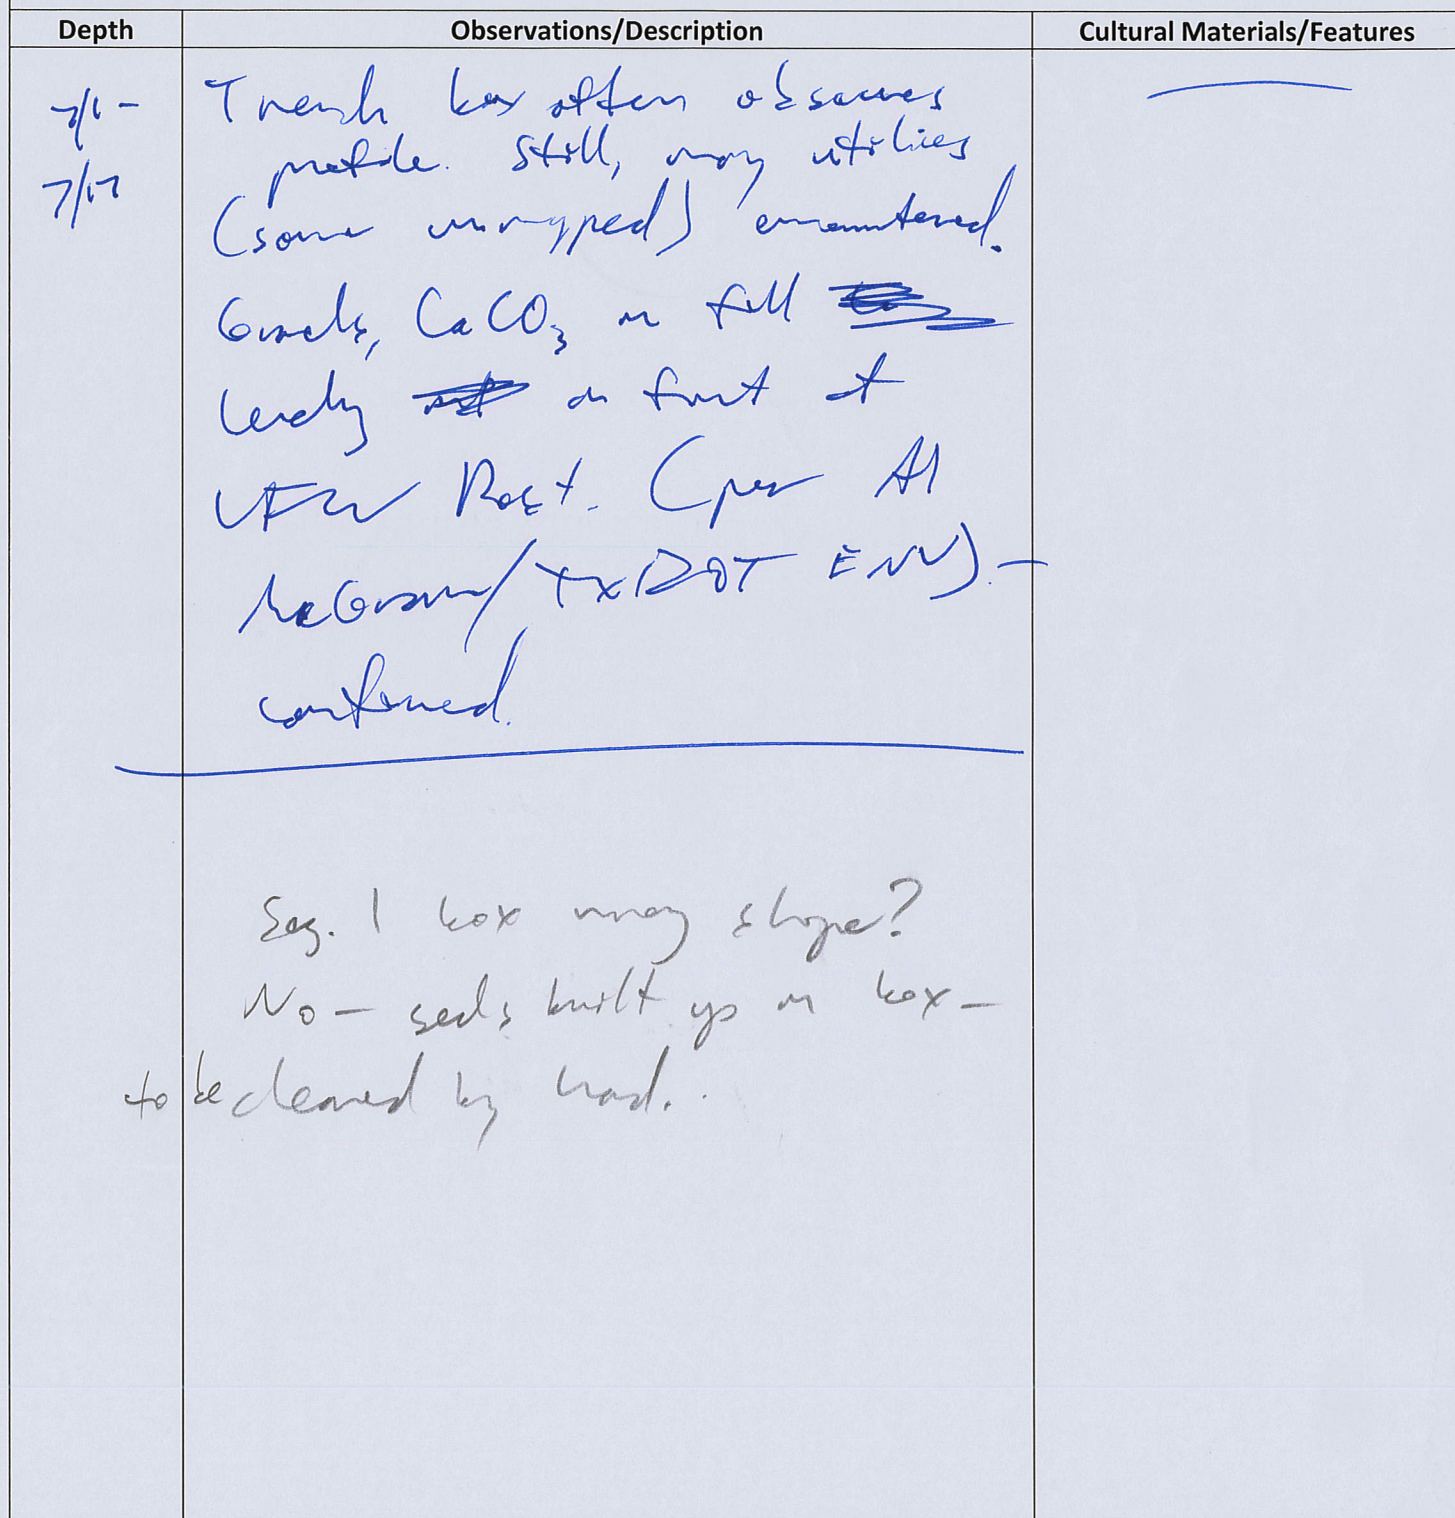 Depth Observations/Description Cultural Materials/Features
7/1 - Trench box often obscures
profile. Still, many utilities
7/17
(some unmapped) encountered.
Gravels, CaCO3 in fill
on front at
VFW Post. (per Al
McGraw/TxDOT ENV). -
confirmed.
Seg. 1 box may slope?
No - seds built up in box -
to be cleaned by hand.